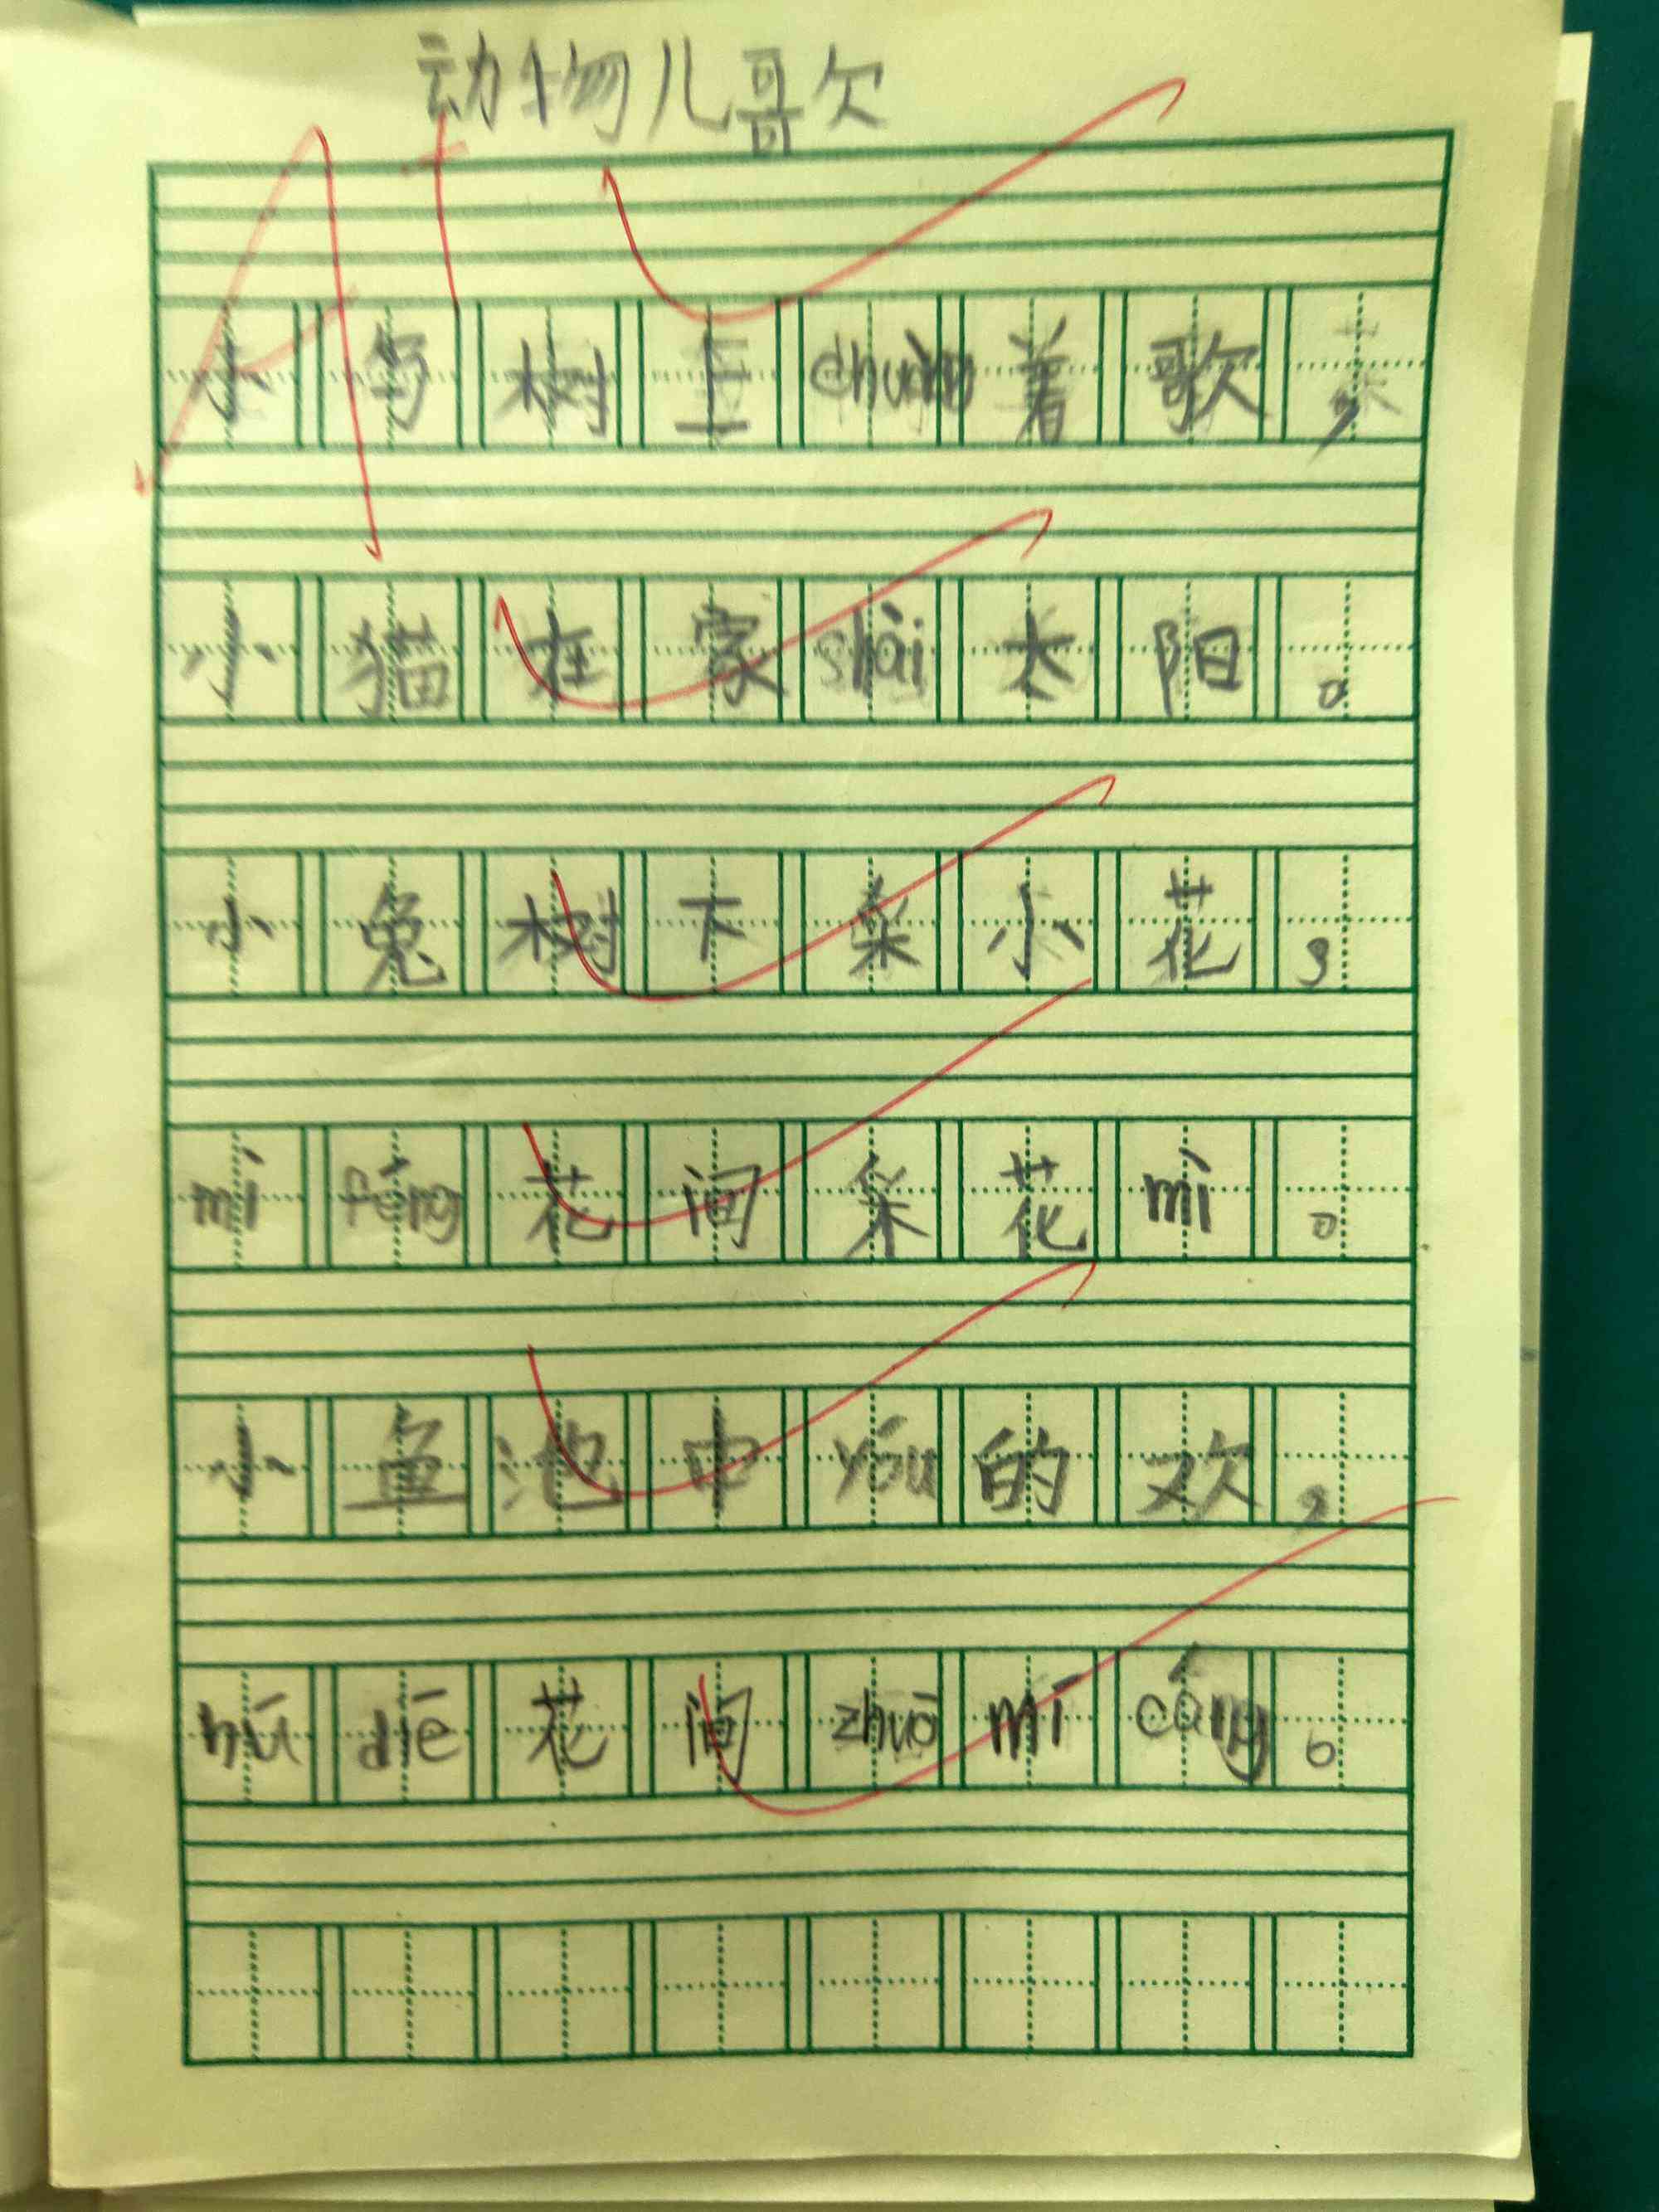 动物儿歌
A+
小鸟树上chuàng着歌，
小猫在家shài太阳。
小兔树下采小花，
mì fēng花间采花mì。
小鱼池中yóu的欢，
hú diē花间zhuō mí cáng。